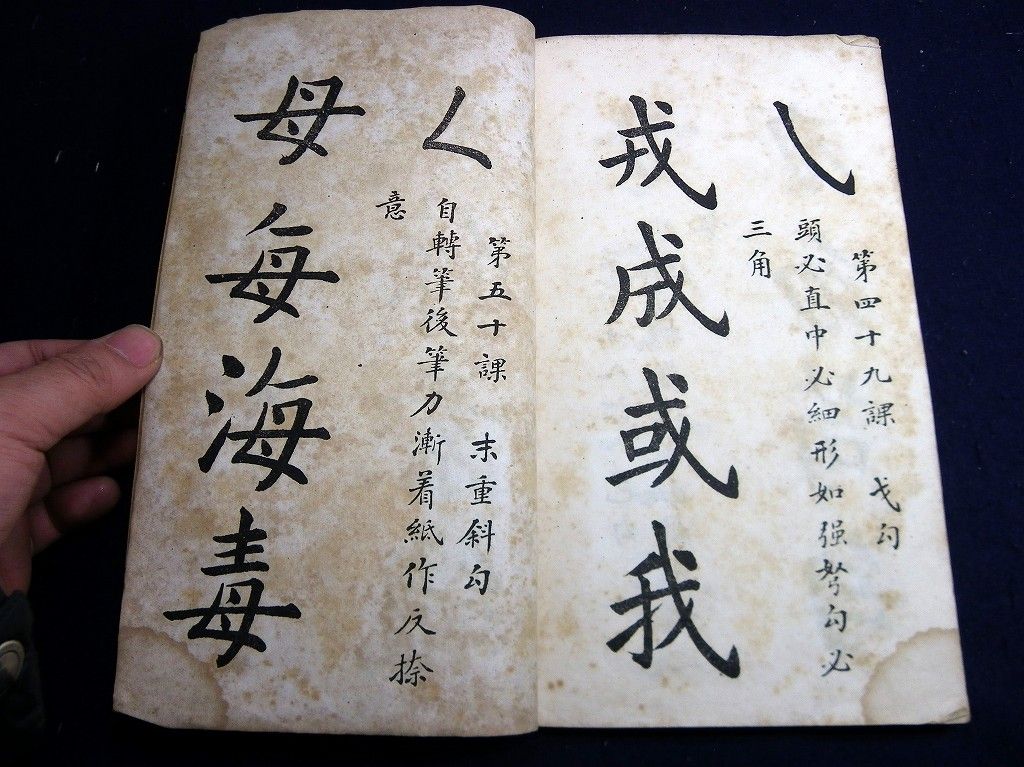 第四十九課　戈勾
頭必直中必細形如强弩勾必
三角
戎成或我
第五十課　末重斜勾
自轉筆後筆力漸着紙作反捺
意
母每海毒